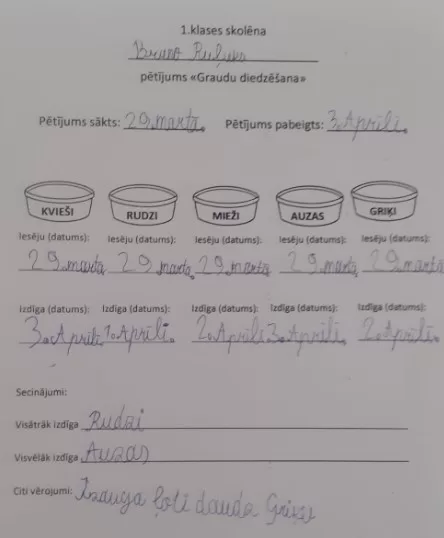 1.klases skolēna
Bruno
pētījums «Graudu diedzēšana»
Pētījums sākts: 29.martā. Pētījums pabeigts: 3.Aprīlī.
KVIEŠI RUDZI MIEŽI AUZAS GRIĶI
Iesēju (datums): Iesēju (datums): Iesēju (datums): Iesēju (datums): Iesēju (datums):
29.martā 29.martā 29.martā 29.martā 29.martā
Izdīga (datums): Izdīga (datums): Izdīga (datums): Izdīga (datums): Izdīga (datums):
3.Aprīlī. 1.Aprīlī. 2.Aprīlī. 3.Aprīlī. 2.Aprīlī.
Secinājumi:
Visātrāk izdīga Rudzi
Visvēlāk izdīga Auzas
Citi vērojumi: Izauga ļoti daudz Griķi